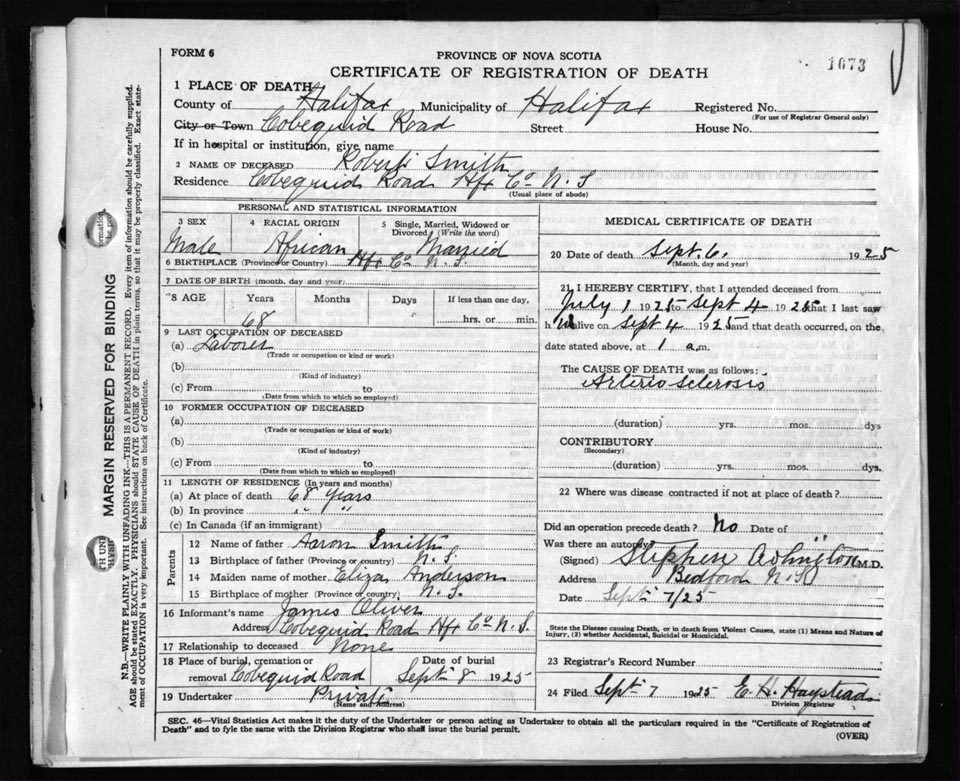 FORM 6
PROVINCE OF NOVA SCOTIA
CERTIFICATE OF REGISTRATION OF DEATH
1073
1 PLACE OF DEATH
County of Halifax Municipality of Halifax Registered No.
(For use of Registrar General only)
City or Town Cobequid Road Street House No.
If in hospital or institution, give name
2 NAME OF DECEASED Robert Smith
Residence Cobequid Road Hfx Co N.S
(Usual place of abode)
PERSONAL AND STATISTICAL INFORMATION
3 SEX 4 RACIAL ORIGIN 5 Single, Married, Widowed or Divorced (Write the word)
Male African Married
6 BIRTHPLACE (Province or Country) Hfx Co N.S.
7 DATE OF BIRTH (month, day and year)
8 AGE Years Months Days If less than one day,
68 hrs. or min.
9 LAST OCCUPATION OF DECEASED
(a) Laborer
(Trade or occupation or kind or work)
(b)
(Kind of industry)
(c) From to
(Date from which to which so employed)
10 FORMER OCCUPATION OF DECEASED
(a)
(Trade or occupation or kind of work)
(b)
(Kind of industry)
(c) From to
(Date from which to which so employed)
11 LENGTH OF RESIDENCE (In years and months)
(a) At place of death 68 years
(b) In province " "
(c) In Canada (if an immigrant)
Parents
12 Name of father Aaron Smith
13 Birthplace of father (Province or country) N.S
14 Maiden name of mother Eliza Anderson
15 Birthplace of mother (Province or country) N.S.
16 Informant's name James Oliver
Address Cobequid Road Hfx Co N.S.
17 Relationship to deceased None
18 Place of burial, cremation or removal Cobequid Road Date of burial Sept 8 1925
19 Undertaker Private
(Name and Address)
MEDICAL CERTIFICATE OF DEATH
20 Date of death Sept. 6, 1925
(Month, day and year)
21 I HEREBY CERTIFY, that I attended deceased from
July 1 1925 to Sept 4 1925 that I last saw
h im alive on Sept 4 1925 and that death occurred, on the
date stated above, at 1 a.m.
The CAUSE OF DEATH was as follows:
Arterio Sclerosis
(duration) yrs. mos. dys
CONTRIBUTORY
(Secondary)
(duration) yrs. mos. dys.
22 Where was disease contracted if not at place of death?
Did an operation precede death? No Date of
Was there an autopsy
(Signed) Stephen M.D.
Address Bedford N.S.
Date Sept 7/25
State the Disease causing Death, or in death from Violent Causes, state (1) Means and Nature of
Injury, (2) whether Accidental, Suicidal or Homicidal.
23 Registrar's Record Number
24 Filed Sept 7 1925 E. H. Haystead
Division Registrar
SEC. 46—Vital Statistics Act makes it the duty of the Undertaker or person acting as Undertaker to obtain all the particulars required in the "Certificate of Registration of
Death" and to fyle the same with the Division Registrar who shall issue the burial permit.
(OVER)
MARGIN RESERVED FOR BINDING
N.B.—WRITE PLAINLY WITH UNFADING INK—THIS IS A PERMANENT RECORD. Every item of information should be carefully supplied.
AGE should be stated EXACTLY. PHYSICIANS should STATE CAUSE OF DEATH in plain terms, so that it may be properly classified. Exact state-
ment of OCCUPATION is very important. See instructions on back of Certificate.